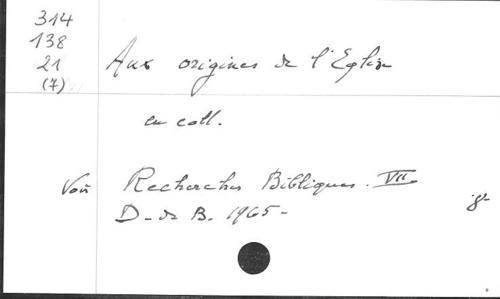 314
138
21
(7)
Aux origines de l'Eglise
en coll.
Voir Recherches Bibliques. VII
D. de B. 1965-